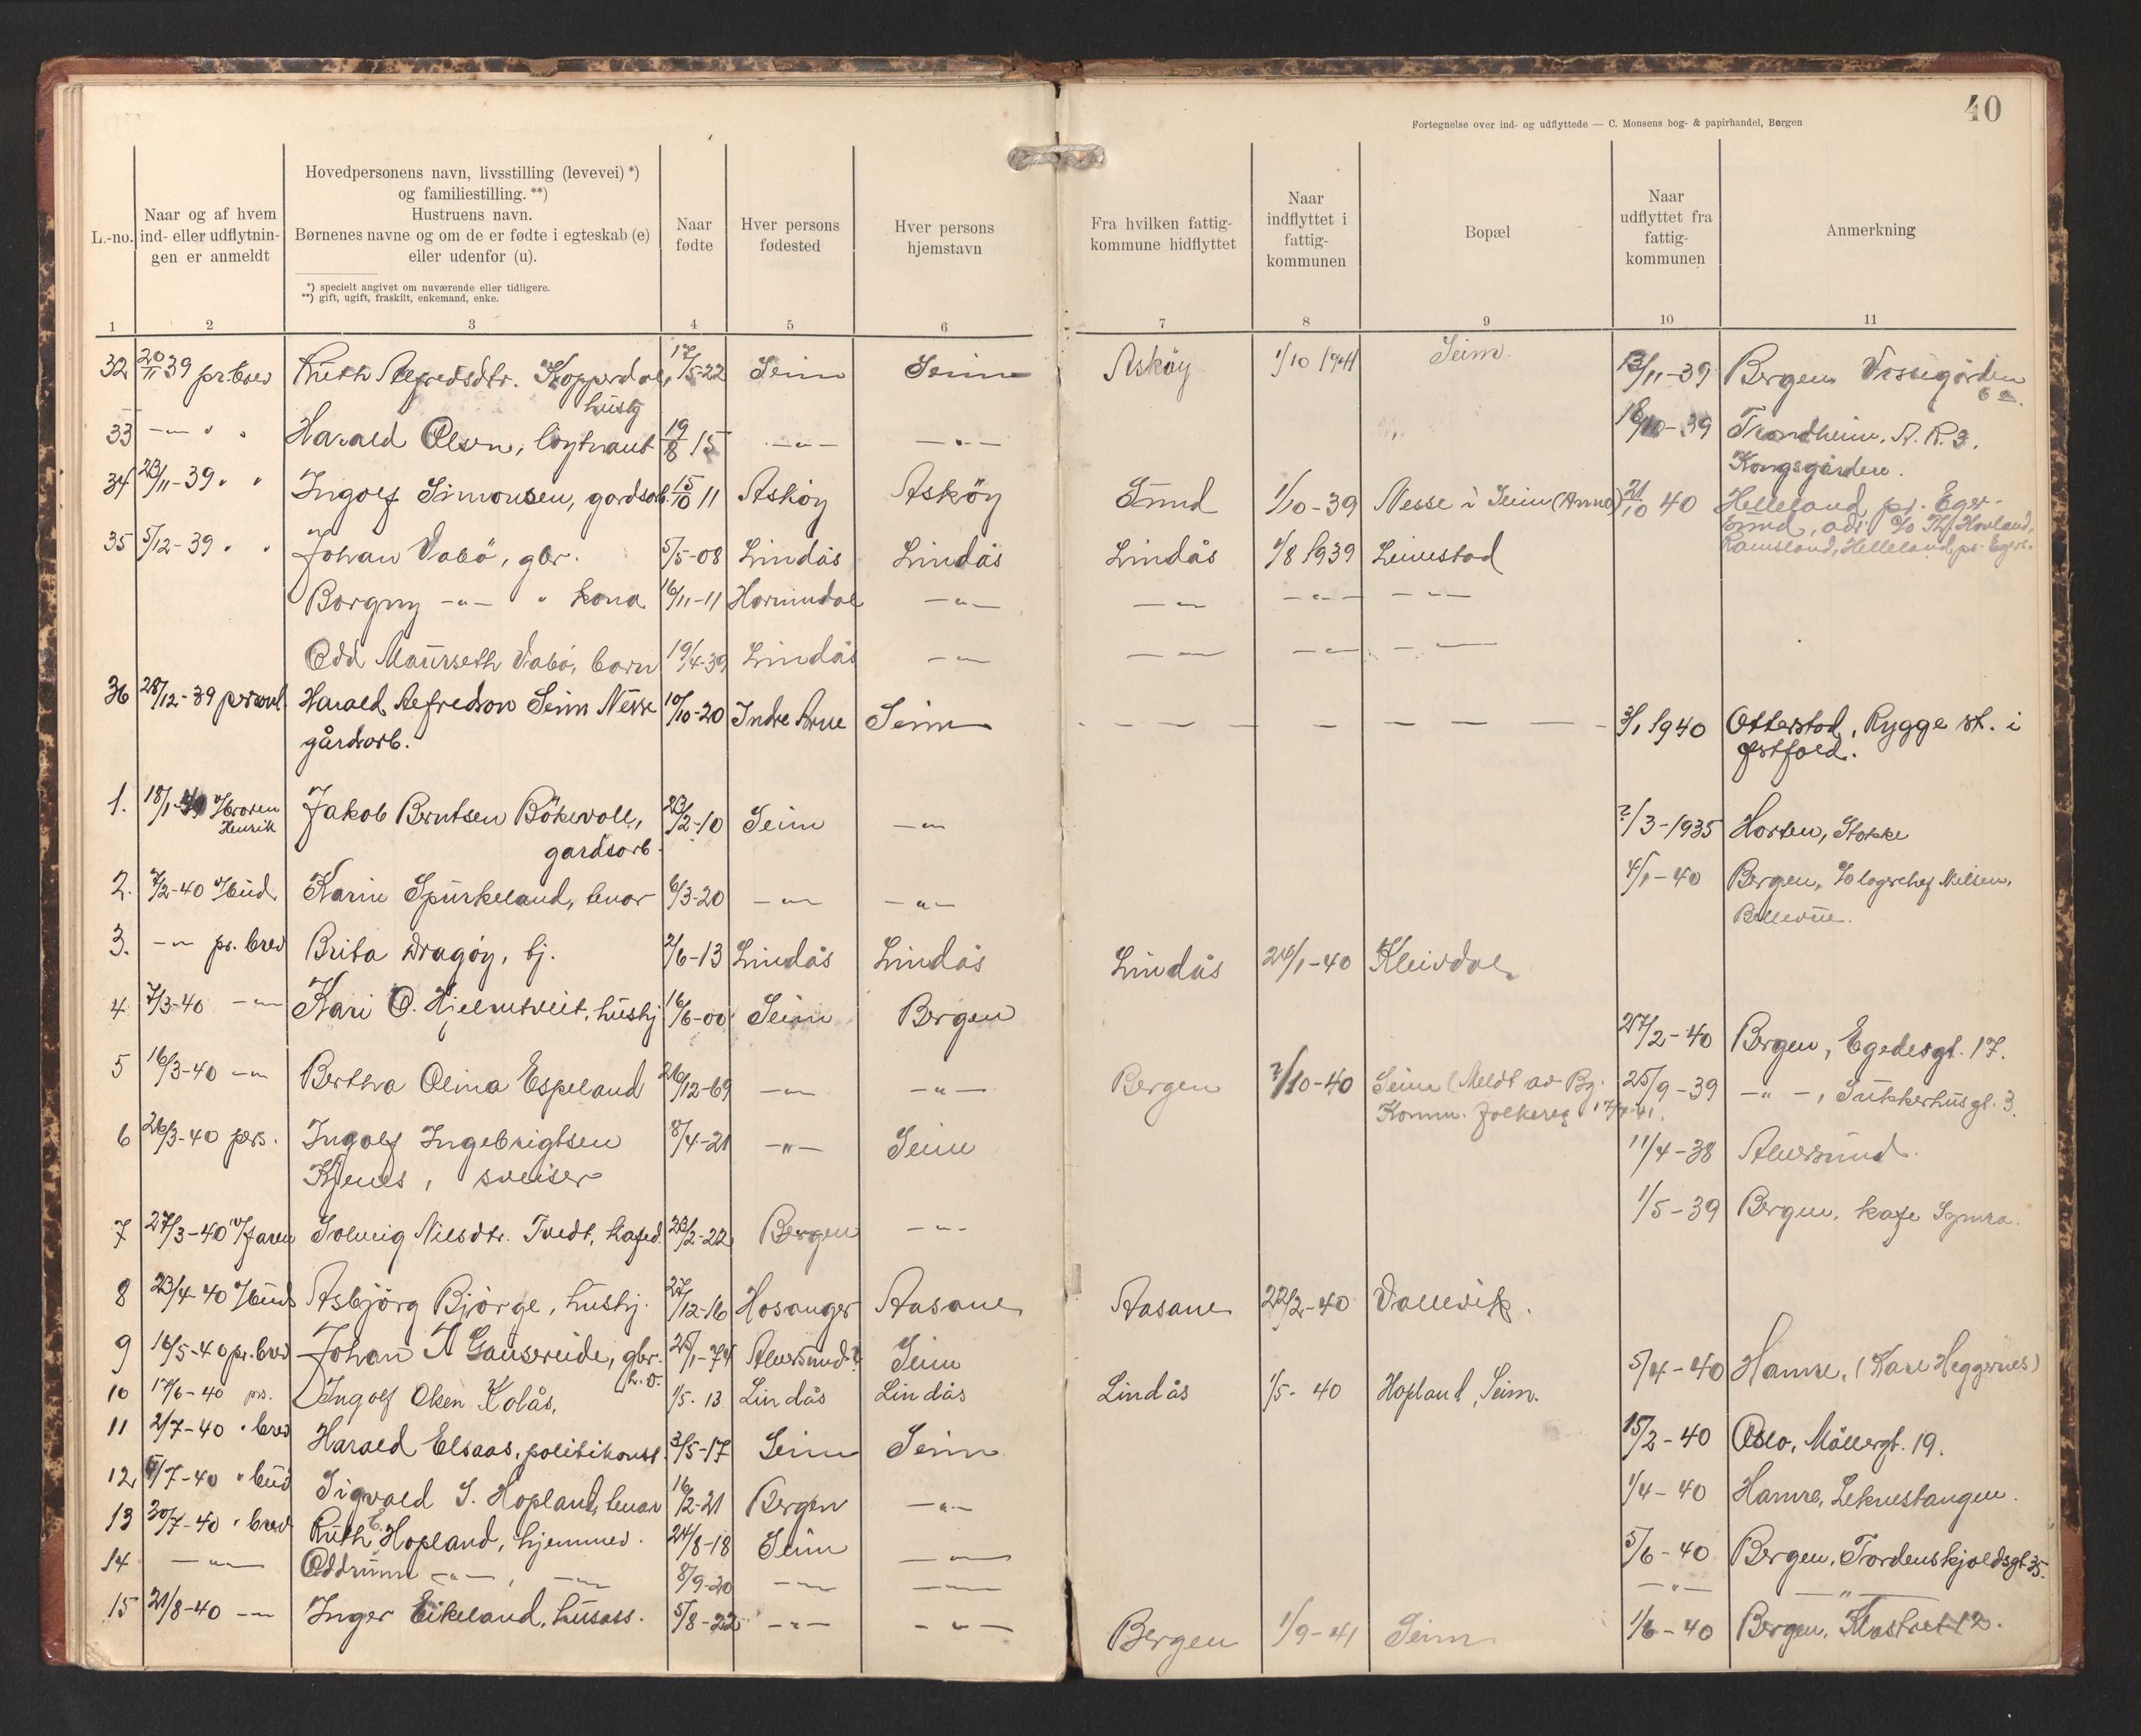 40
Fortegnelse over ind- og udflyttede — C. Monsens bog- & papirhandel, Bergen
L.-no. | Naar og af hvem ind- eller udflytnin-gen er anmeldt | Hovedpersonens navn, livsstilling (levevei) *) og familiestilling. **) Hustruens navn. Børnenes navne og om de er fødte i egteskab (e) eller udenfor (u). | Naar fødte | Hver persons fødested | Hver persons hjemstavn | Fra hvilken fattig-kommune hidflyttet | Naar indflyttet i fattig-kommunen | Bopæl | Naar udflyttet fra fattig-kommunen | Anmerkning
*) specielt angivet om nuværende eller tidligere.
**) gift, ugift, fraskilt, enkemand, enke.
1 2 3 4 5 6 7 8 9 10 11
32 20/11 39 pr. brev Ruth Alfredsdtr. Kopperdal, hushj 17/5-22 Seim Seim Askøy 1/10 1941 Seim 13/11-39 Bergen Vossegården 6 a.
33 -"- " " Harald Olsen, løytnant 19/8 15 -"- -"- 18/10-39 Trondheim, A. R. 3, Kongsgården.
34 23/11-39 " " Ingolf Simonsen, gardsarb. 15/10 11 Askøy Askøy Sund 1/10-39 Nesse i Seim (Anna) 21/10 40 Helleland pr. Eger-
sund, adr. c/o Th. Hovland, Ramsland, Helleland pr. Egers.
35 5/12-39 " " Johan Vabø, gbr. 5/5-08 Lindås Lindås Lindås 1/8 1939 Leivestad
Borgny -"- " kona 16/11-11 Hornindal -"- -"- -"- -"-
Odd Maurseth Vabø, barn 19/4-39 Lindås -"- -"- -"- -"-
36 28/12-39 personl. Harald Alfredson Seim Nesse gårdsarb. 10/10-20 Indre Arne Seim - - - - - 3/1 1940 Otterstad, Rygge st. i Østfold.
1. 18/1-40 v/broren Henrik Jakob Berntsen Bökevoll, gardsarb. 23/2-10 Seim -"- ?/3-1935 Horten, Stokke
2. 7/2-40 v/bud Karin Spurkeland, tenar 6/3-20 -"- -"- 4/1-40 Bergen, c/o lagerchef Nilsen, Bellevue.
3. -"- pr. brev Brita Dragøy, tj. 2/6-13 Lindås Lindås Lindås 24/1-40 Kleivdal
4 7/3-40 -"- Kari O. Hjelmtveit, hushj 16/6-00 Seim Bergen 27/2-40 Bergen, Egedesgt. 17.
5 16/3-40 -"- Bertha Olina Espeland 26/12-69 -"- -"- Bergen ?/10-40 Seim (Meldt av Bg. Komm. folkereg. 25/9-39 -"-, Sukkerhusgt. 3.
6 26/3-40 pers. Ingolf Ingebrigtsen Kjenes, sveiser 8/4-21 -"- Seim 11/4-38 Alversund.
7 27/3-40 v/faren Solveig Nilsdtr. Tvedt, kafed. 23/2-22 Bergen -"- 1/5-39 Bergen, kafe Symra.
8 23/4-40 v/bud Asbjörg Bjørge, hushj. 27/12-16 Hosanger Aasane Aasane 22/2-40 Vallevik.
9 16/5-40 pr. brev Johan A Gausereide, gbr. 25/1-74 Alversund? Seim 5/4-40 Hamre, (Kare Heggernes)
10 17/6-40 prs. Ingolf Olsen Kolås, 1/5-13 Lindås Lindås Lindås 1/5-40 Hopland, Seim.
11 2/7-40 " brev Harald Elsaas, politikonst. 3/5-17 Seim Seim 15/2-40 Oslo, Möllergt. 19.
12 /7-40 " bud Sigvald S. Hopland, tenar 16/2-21 Bergen -"- 1/4-40 Hamre, Leknestangen.
13 30/7-40 " brev Ruth Hopland, hjemmev. 24/8-18 Seim -"- 5/6-40 Bergen, Tordenskjoldsgt 35.
14 -"- Oddrunn -"-, -"- 8/9-20 -"- -"- -"- -"-
15 21/8-40 -"- Inger Eikeland, husass. 5/8-22 -"- -"- Bergen 1/9-41 Seim 1/6-40 Bergen, Klostret 12.